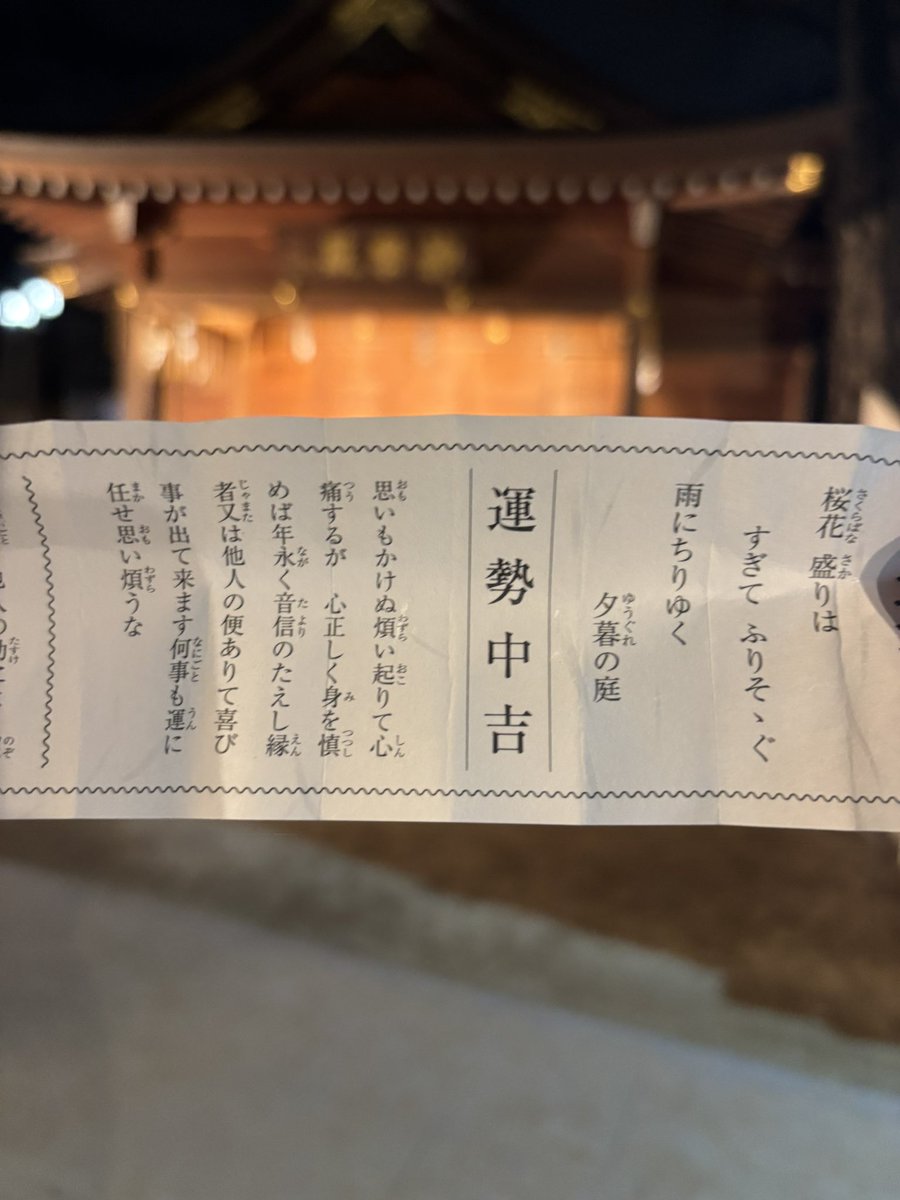 桜花 盛りは
すぎて ふりそゝぐ
雨にちりゆく
夕暮の庭
運勢中吉
思いもかけぬ煩い起りて心
痛するが 心正しく身を慎
めば年永く音信のたえし縁
者又は他人の便ありて喜び
事が出て来ます何事も運に
任せ思い煩うな